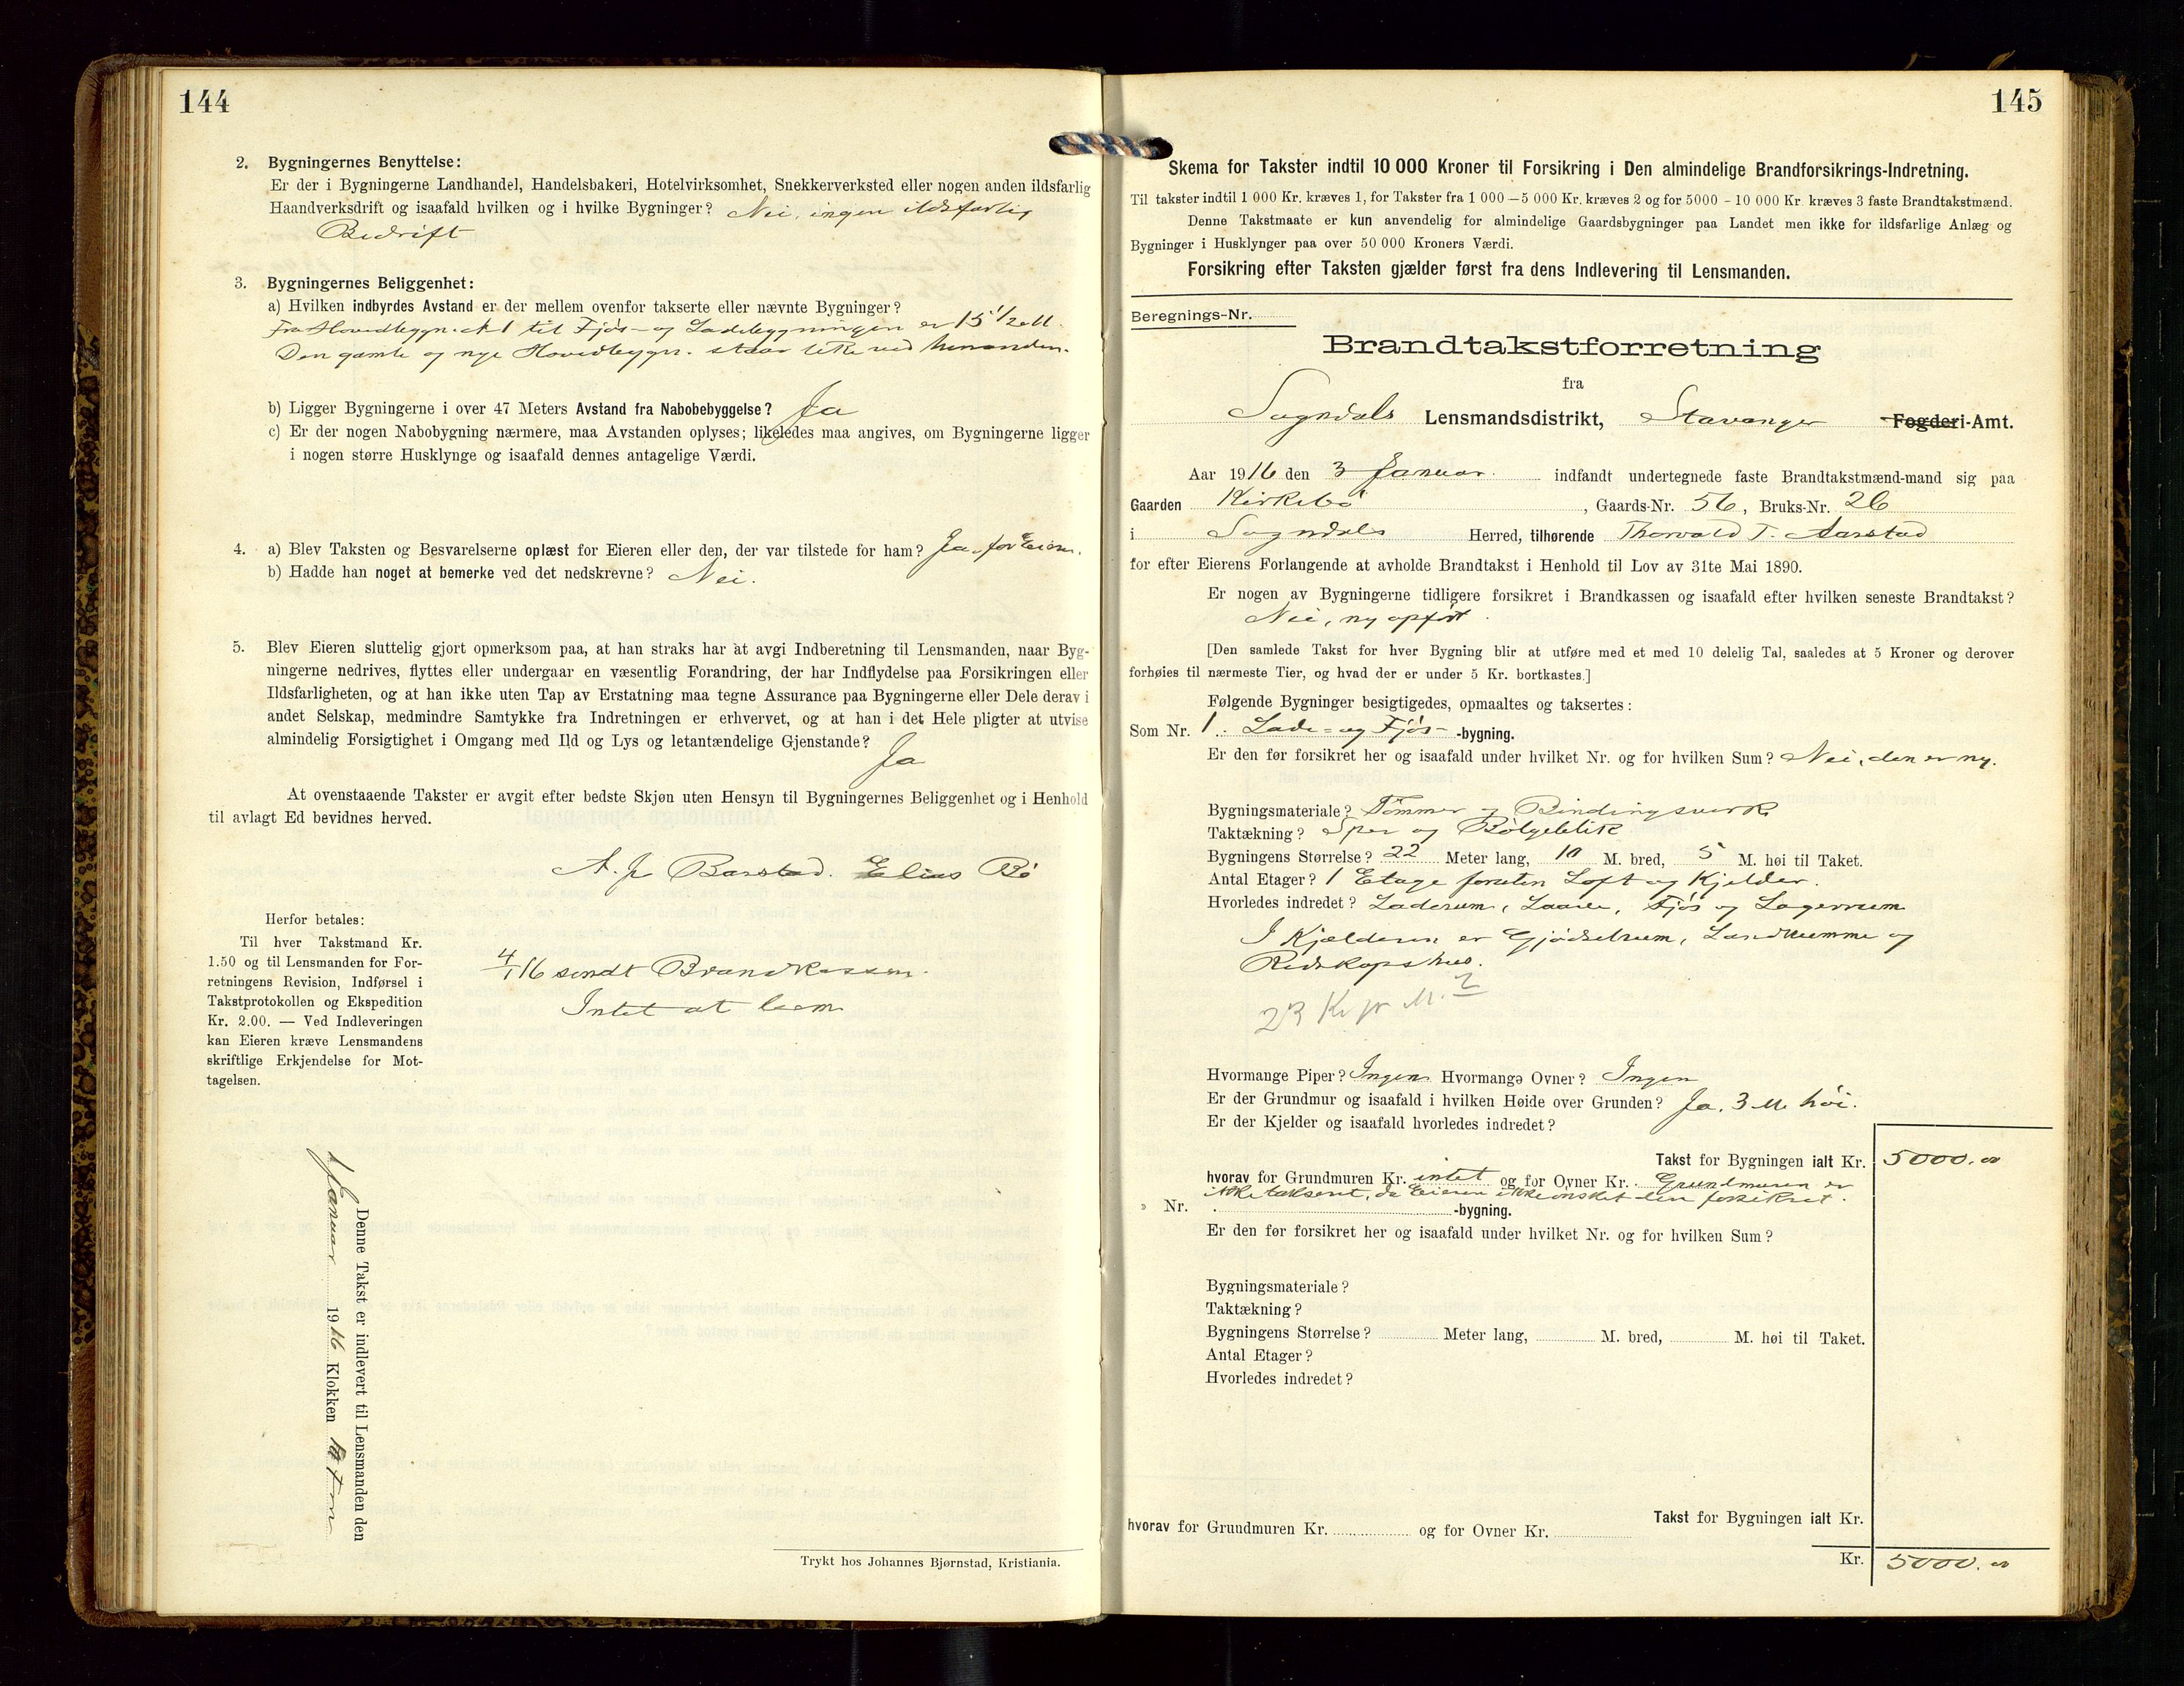 144
2. Bygningernes Benyttelse:
Er der i Bygningerne Landhandel, Handelsbakeri, Hotelvirksomhet, Snekkerverksted eller nogen anden ildsfarlig
Haandverksdrift og isaafald hvilken og i hvilke Bygninger? Nei, ingen ildsfarlig
Bedrift
3. Bygningernes Beliggenhet:
a) Hvilken indbyrdes Avstand er der mellem ovenfor takserte eller nævnte Bygninger?
Fra Hovedbygn. № 1 til Fjøs- og Ladebygningen er 15 1/2 M.
Den gamle og nye Hovedbygn. staar like ved hverandre.
b) Ligger Bygningerne i over 47 Meters Avstand fra Nabobebyggelse? Ja
c) Er der nogen Nabobygning nærmere, maa Avstanden oplyses; likeledes maa angives, om Bygningerne ligger
i nogen større Husklynge og isaafald dennes antagelige Værdi.
4. a) Blev Taksten og Besvarelserne oplæst for Eieren eller den, der var tilstede for ham? Ja, for Eieren.
b) Hadde han noget at bemerke ved det nedskrevne? Nei.
5. Blev Eieren sluttelig gjort opmerksom paa, at han straks har at avgi Indberetning til Lensmanden, naar Byg-
ningerne nedrives, flyttes eller undergaar en væsentlig Forandring, der har Indflydelse paa Forsikringen eller
Ildsfarligheten, og at han ikke uten Tap av Erstatning maa tegne Assurance paa Bygningerne eller Dele derav i
andet Selskap, medmindre Samtykke fra Indretningen er erhvervet, og at han i det Hele pligter at utvise
almindelig Forsigtighet i Omgang med Ild og Lys og letantændelige Gjenstande?
Ja
At ovenstaaende Takster er avgit efter bedste Skjøn uten Hensyn til Bygningernes Beliggenhet og i Henhold
til avlagt Ed bevidnes herved.
A. J. Barstad. Elias Bø
Herfor betales:
Til hver Takstmand Kr.
1.50 og til Lensmanden for For-
retningens Revision, Indførsel i
Takstprotokollen og Ekspedition
Kr. 2.00. — Ved Indleveringen
kan Eieren kræve Lensmandens
skriftlige Erkjendelse for Mot-
tagelsen.
4/1 16 sendt Brandkassen.
Intet at bem
Denne Takst er indlevert til Lensmanden den
1 Januar 1916 Klokken
Trykt hos Johannes Bjørnstad, Kristiania.
145
Skema for Takster indtil 10 000 Kroner til Forsikring i Den almindelige Brandforsikrings-Indretning.
Til takster indtil 1 000 Kr. kræves 1, for Takster fra 1 000 – 5 000 Kr. kræves 2 og for 5000 - 10 000 Kr. kræves 3 faste Brandtakstmænd.
Denne Takstmaate er kun anvendelig for almindelige Gaardsbygninger paa Landet men ikke for ildsfarlige Anlæg og
Bygninger i Husklynger paa over 50 000 Kroners Værdi.
Forsikring efter Taksten gjælder først fra dens Indlevering til Lensmanden.
Beregnings-Nr.
Brandtakstforretning
fra
Sogndals Lensmandsdistrikt, Stavanger Fogderi-Amt.
Aar 1916 den 3 Januar. indfandt undertegnede faste Brandtakstmænd-mand sig paa
Gaarden Kirkebø, Gaards-Nr. 56, Bruks-Nr. 26
i Sogndals Herred, tilhørende Thorvald T. Aarstad
for efter Eierens Forlangende at avholde Brandtakst i Henhold til Lov av 31te Mai 1890.
Er nogen av Bygningerne tidligere forsikret i Brandkassen og isaafald efter hvilken seneste Brandtakst?
Nei, ny opført.
[Den samlede Takst for hver Bygning blir at utføre med et med 10 delelig Tal, saaledes at 5 Kroner og derover
forhøies til nærmeste Tier, og hvad der er under 5 Kr. bortkastes.]
Følgende Bygninger besigtigedes, opmaaltes og taksertes:
Som Nr. 1. Lade- og Fjøs- -bygning.
Er den før forsikret her og isaafald under hvilket Nr. og for hvilken Sum? Nei, den er ny.
Bygningsmateriale? Tømmer og Bindingsverk
Taktækning? Spon og Bølgeblik
Bygningens Størrelse? 22 Meter lang, 10 M. bred, 5 M. høi til Taket.
Antal Etager? 1 Etage foruten Loft og Kjelder.
Hvorledes indredet? Laderum, Laave, Fjøs og Lagerrum
I Kjælderen er Gjødselrum, Landkumme og
Redskapshus.
23 Kr pr M.2
Hvormange Piper? Ingen Hvormange Ovner? Ingen
Er der Grundmur og isaafald i hvilken Høide over Grunden? Ja, 3 M. høi.
Er der Kjelder og isaafald hvorledes indredet?
Takst for Bygningen ialt Kr. 5000.00
hvorav for Grundmuren Kr. intet og for Ovner Kr. Grundmuren er
ikke taksert, da Eieren ikke ønsket den forsikret.
» Nr. -bygning.
Er den før forsikret her og isaafald under hvilket Nr. og for hvilken Sum?
Bygningsmateriale?
Taktækning?
Bygningens Størrelse? Meter lang, M. bred, M. høi til Taket.
Antal Etager?
Hvorledes indredet?
Takst for Bygningen ialt Kr.
hvorav for Grundmuren Kr. og for Ovner Kr.
Kr. 5000.00